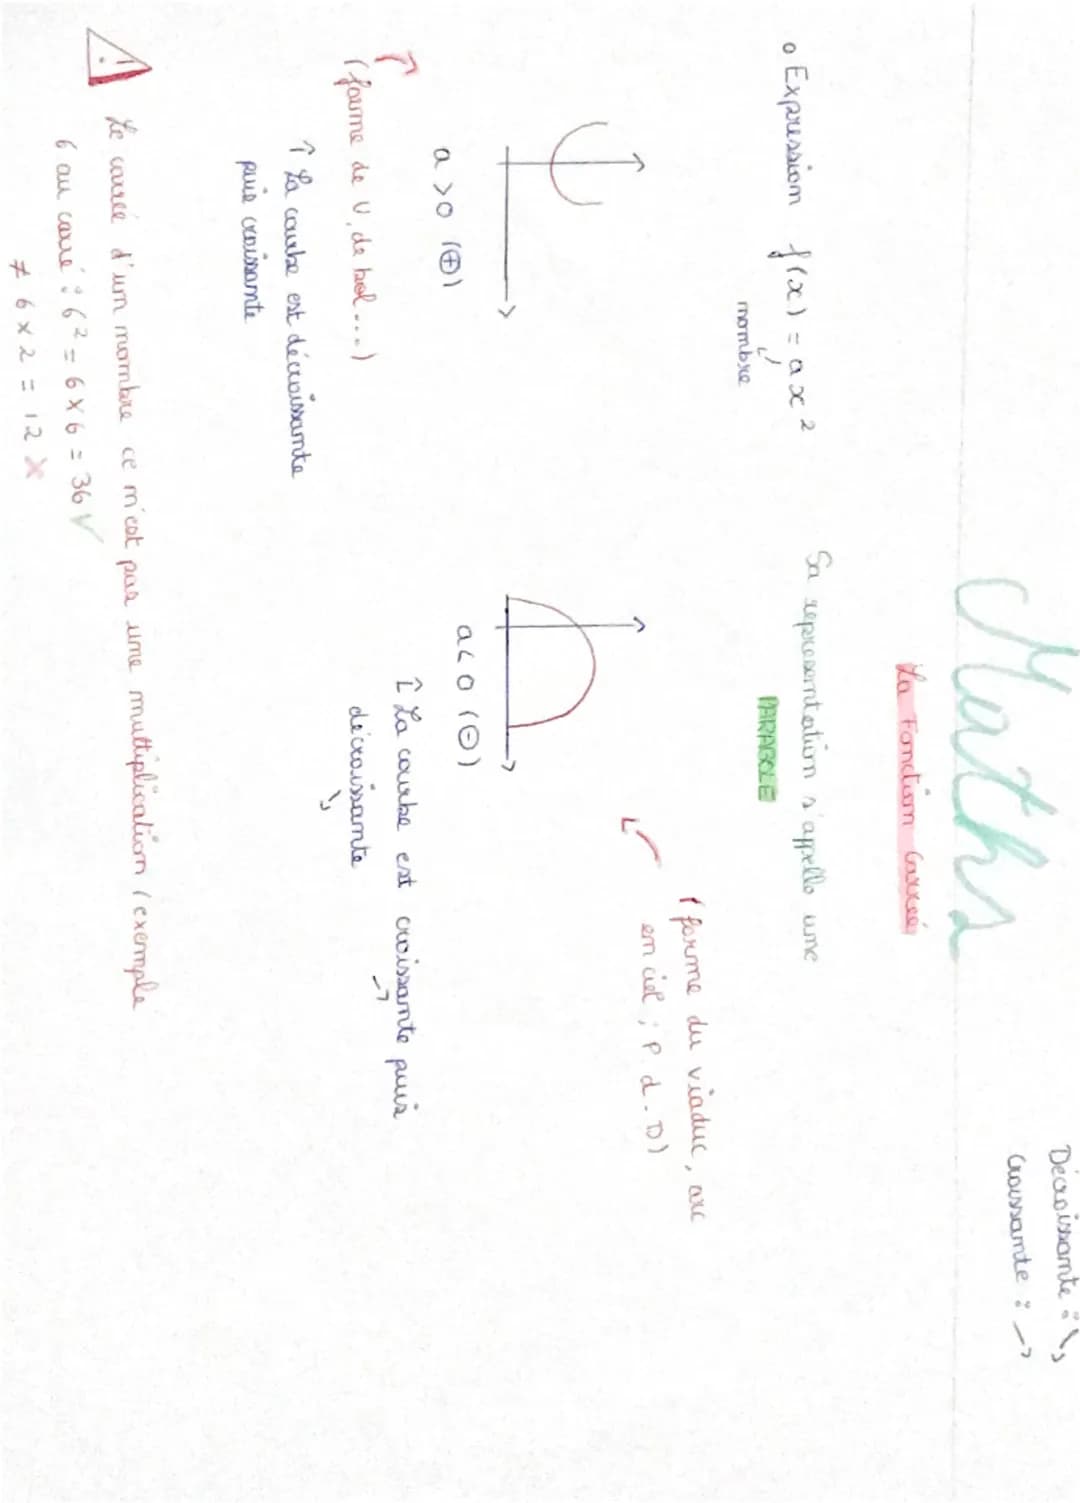 Décroissante : ↘
Croissante : ↗
Maths
La Fonction Carrée
o Expression f(x) = ax²
nombre
Sa representation s'appelle une
PARABOLE
(forme du viaduc, arc
en ciel ; P d.D)
a > 0 (⊕)
(forme de U, de bol...)
↑ La courbe est décroissante
puis croissante
a < 0 (⊖)
↑ La courbe est croissante puis
décroissante
! Le carré d'un nombre ce n'est pas une multiplication (exemple
6 au carré : 6² = 6 x 6 = 36 ✓
≠ 6 x 2 = 12 ×